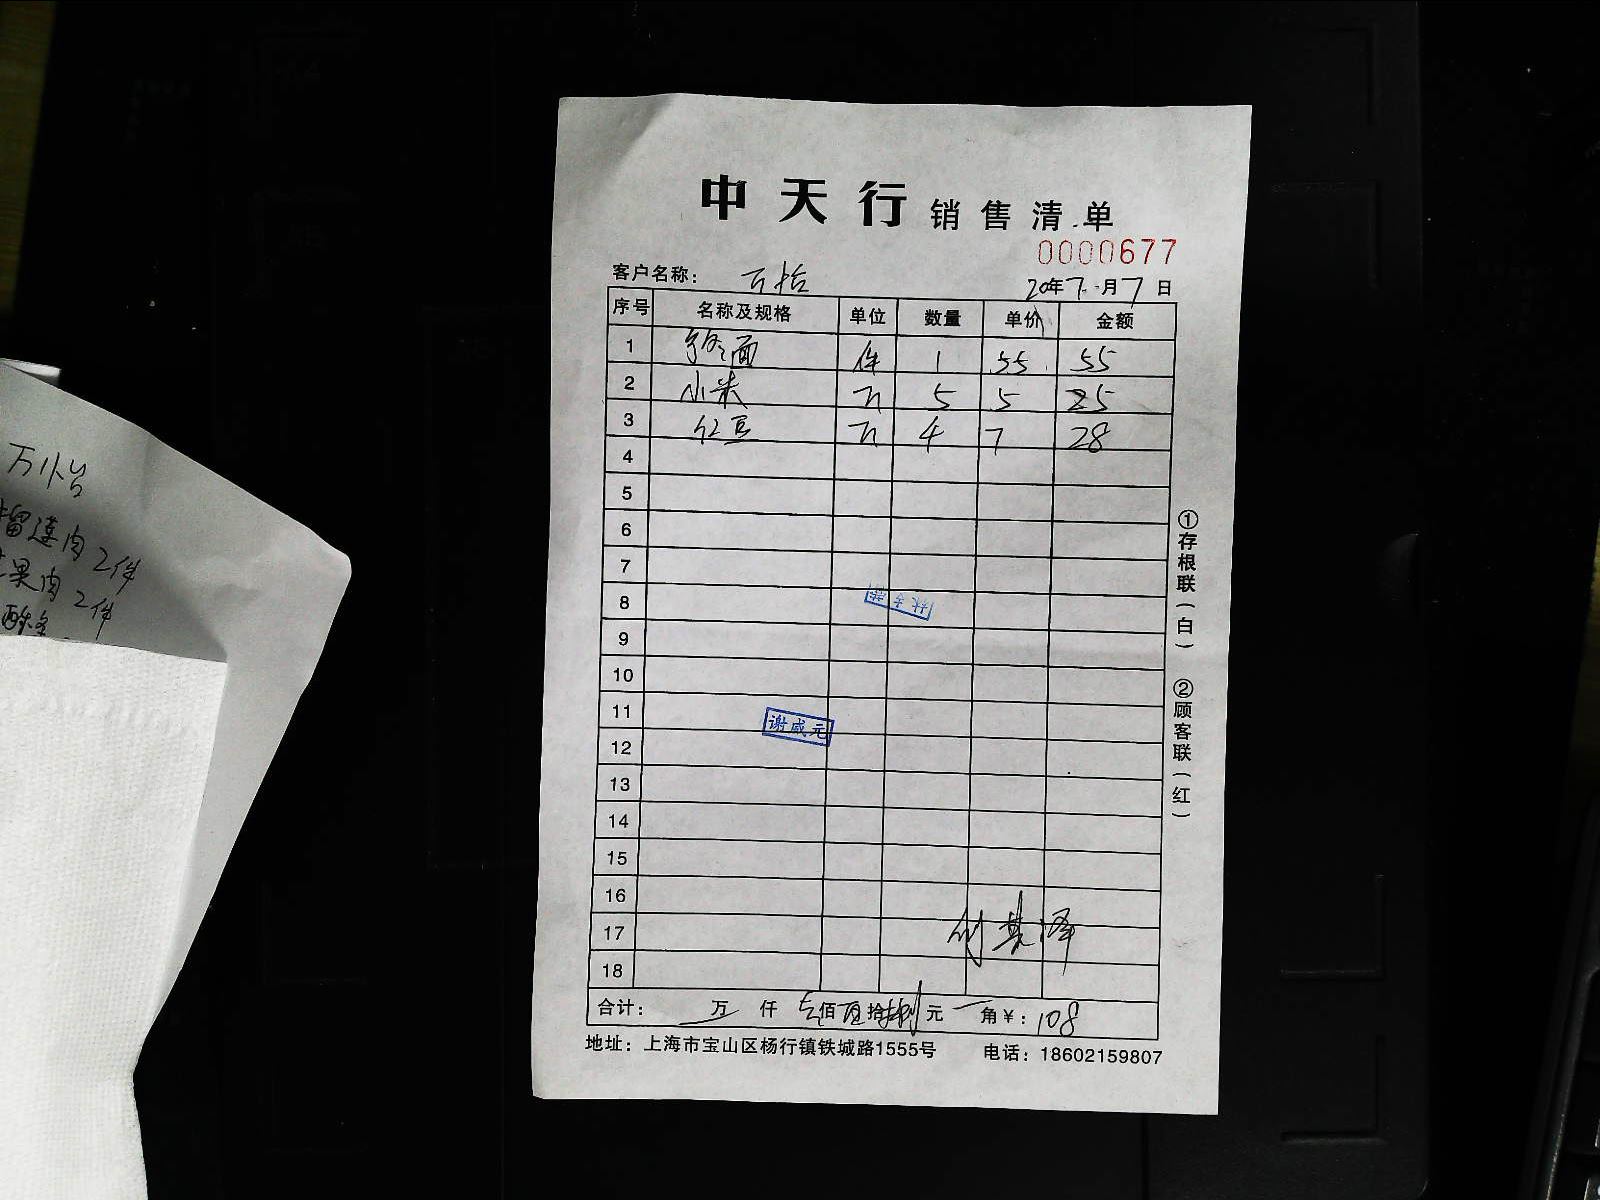 中天行 销售清单
0000677
客户名称: 万怡 20年7月7日
序号 名称及规格 单位 数量 单价 金额
1 面 件 1 55 55
2 小米 斤 5 5 25
3 红豆 斤 4 7 28
4
5
6
7
8
9
10
11
谢成元
12
13
14
15
16
17
18
合计: 万 仟 佰 拾 元 角 ¥: 108
地址: 上海市宝山区杨行镇铁城路1555号 电话: 18602159807
①存根联(白) ②顾客联(红)
万怡
榴莲肉 2件
果肉 2件